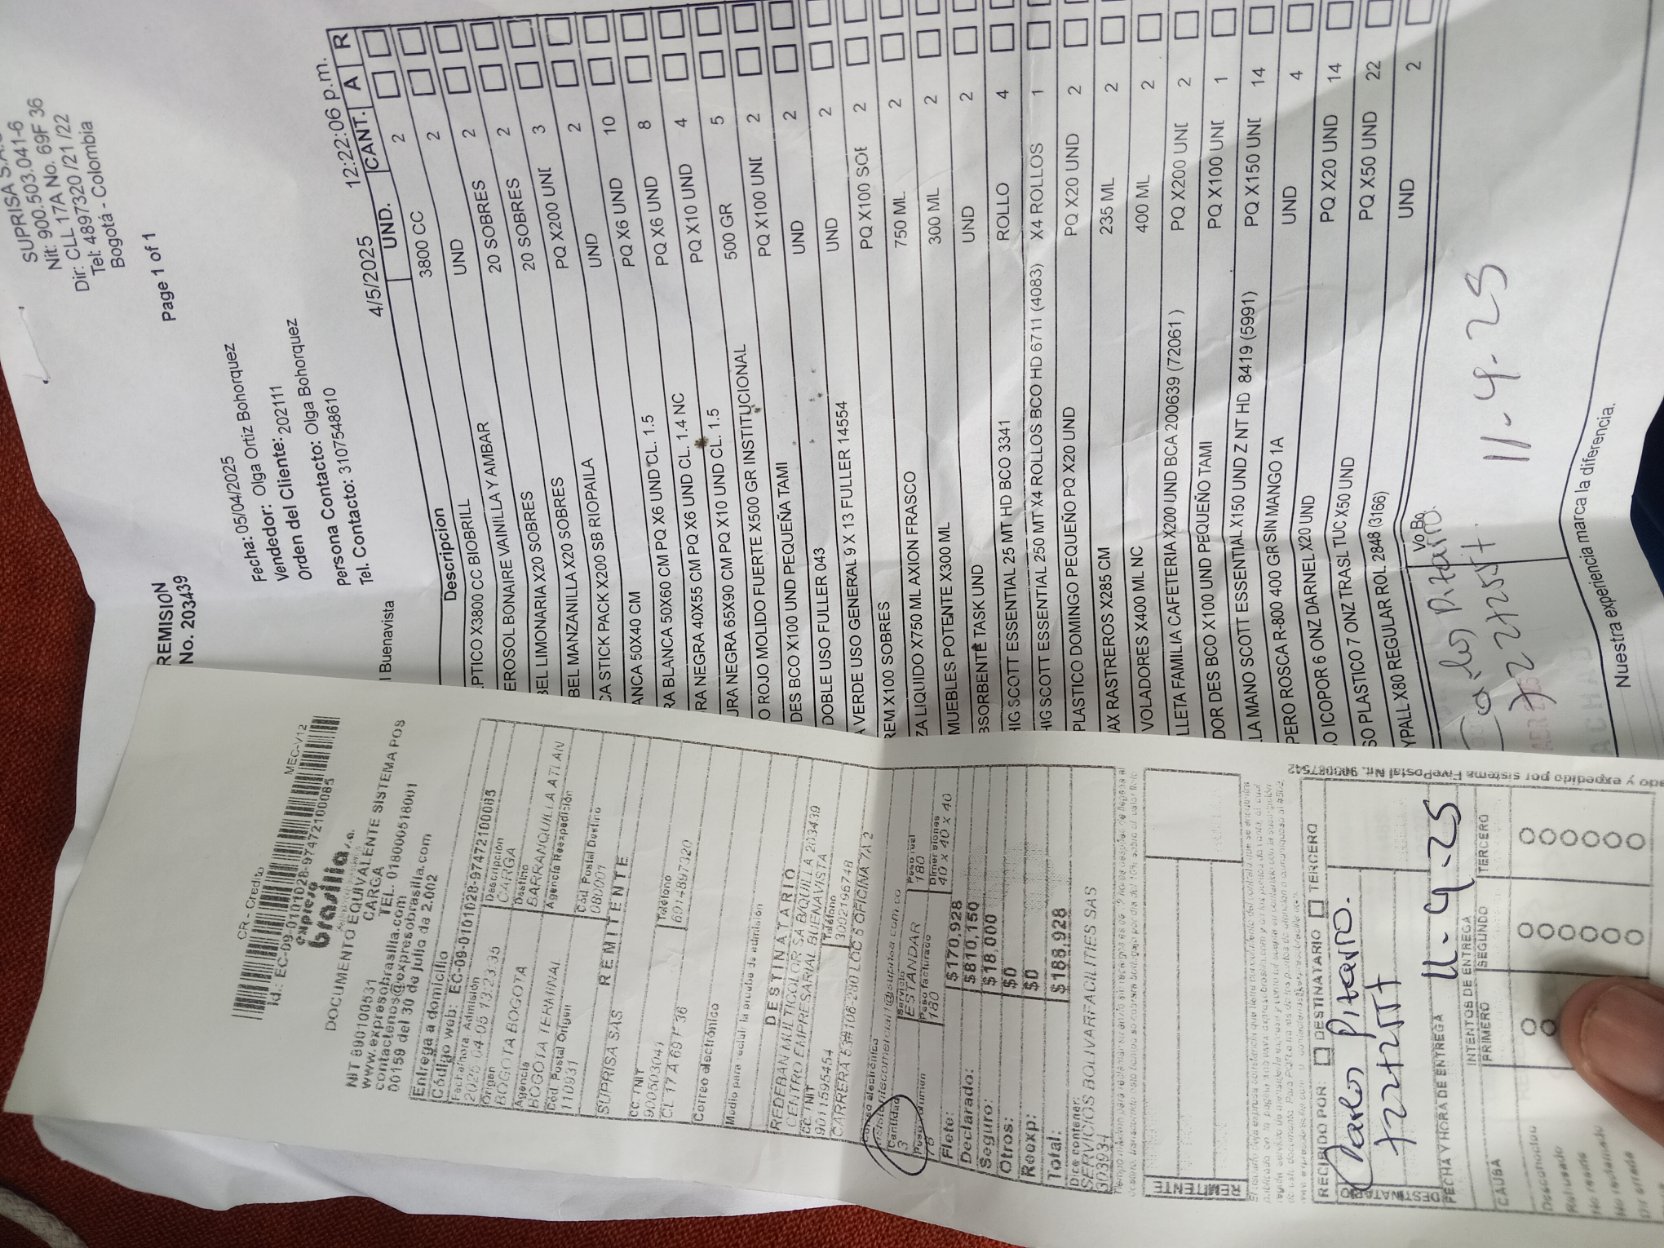 SUPRISA S.A.S
Nit: 900.503.041-6
Dir: CLL 17A No. 69F 36
Tel: 4897320 /21 /22
Bogotá - Colombia
Page 1 of 1
REMISION
No. 203439
Fecha: 05/04/2025
Vendedor: Olga Ortiz Bohorquez
Orden del Cliente: 202111
Persona Contacto: Olga Bohorquez
Tel. Contacto: 3107548610
Buenavista
4/5/2025 12:22:06 p.m.
Descripcion UND. CANT. A R
PTICO X3800 CC BIOBRILL 3800 CC 2
EROSOL BONAIRE VAINILLA Y AMBAR UND 2
BEL LIMONARIA X20 SOBRES 20 SOBRES 2
BEL MANZANILLA X20 SOBRES 20 SOBRES 2
CA STICK PACK X200 SB RIOPAILA PQ X200 UNI 3
ANCA 50X40 CM UND 2
RA BLANCA 50X60 CM PQ X6 UND CL. 1.5 PQ X6 UND 10
RA NEGRA 40X55 CM PQ X6 UND CL. 1.4 NC PQ X6 UND 8
URA NEGRA 65X90 CM PQ X10 UND CL. 1.5 PQ X10 UND 4
O ROJO MOLIDO FUERTE X500 GR INSTITUCIONAL 500 GR 5
DES BCO X100 UND PEQUEÑA TAMI PQ X100 UNI 2
DOBLE USO FULLER 043 UND 2
VERDE USO GENERAL 9 X 13 FULLER 14554 UND 2
REM X100 SOBRES PQ X100 SOB 2
ZA LIQUIDO X750 ML AXION FRASCO 750 ML 2
MUEBLES POTENTE X300 ML 300 ML 2
BSORBENTE TASK UND UND 2
HIG SCOTT ESSENTIAL 25 MT HD BCO 3341 ROLLO 4
HIG SCOTT ESSENTIAL 250 MT X4 ROLLOS BCO HD 6711 (4083) X4 ROLLOS 1
PLASTICO DOMINGO PEQUEÑO PQ X20 UND PQ X20 UND 2
AX RASTREROS X285 CM 235 ML 2
VOLADORES X400 ML NC 400 ML 2
LLETA FAMILIA CAFETERIA X200 UND BCA 200639 (72061 ) PQ X200 UNI 2
DOR DES BCO X100 UND PEQUEÑO TAMI PQ X100 UNI 1
LA MANO SCOTT ESSENTIAL X150 UND Z NT HD 8419 (5991) PQ X150 UNI 14
PERO ROSCA R-800 400 GR SIN MANGO 1A UND 4
O ICOPOR 6 ONZ DARNEL X20 UND PQ X20 UND 14
SO PLASTICO 7 ONZ TRASL TUC X50 UND PQ X50 UND 22
YPALL X80 REGULAR ROL 2848 (3166) UND 2
Vo.Bo
Carlos Pitarro.
11-4-25
Nuestra experiencia marca la diferencia.
CR - Credito MEC-V12
Id.: EC-09-0101028-97472100085
expreso
brasilia s.a.
DOCUMENTO EQUIVALENTE SISTEMA POS
CARGA
NIT 890100531 TEL. 018000518001
www.expresobrasilia.com
contactenos@expresobrasilia.com
00159 del 30 de julio de 2.002
Entrega a domicilio
Código web: EC-09-0101028-97472100085
Fecha/hora Admisión Descripción
CARGA
Origen Destino
BOGOTA BOGOTA BARRANQUILLA ATLAN
Agencia Agencia Reexpedición
BOGOTA TERMINAL
Cód. Postal Origen Cód. Postal Destino
110931 080001
REMITENTE
SUPRISA SAS
CC NIT Teléfono
900503041 6014897320
CL 17 A 69 F 36
Correo electrónico
DESTINATARIO
REDEBAN MULTICOLOR SA B/QUILLA 203439
CENTRO EMPRESARIAL BUENAVISTA
CC NIT Teléfono
9011595454 3002196748
CARRERA 53#106-280 LOC 5 OFICINA 7A 2
Correo electrónico
Cantidad Servicio Peso real
3 ESTANDAR 180
Peso volumen Peso facturado Dimensiones
76 180 40 x 40 x 40
Flete: $170,928
Declarado: $810,150
Seguro: $18,000
Otros: $0
Reexp: $0
Total: $188,928
Dice contener:
SERVICIOS BOLIVAR FACILITIES SAS
203934
REMITENTE
RECIBIDO POR DESTINATARIO TERCERO
DESTINATARIO
Carlos Pitarro.
FECHA Y HORA DE ENTREGA 11-4-25
INTENTOS DE ENTREGA
CAUSA PRIMERO SEGUNDO TERCERO
Desconocido
Rehusado
No reside
No reclamado